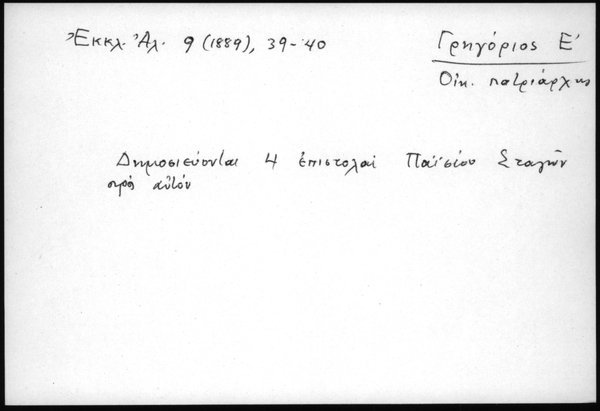 Ἐκκλ. Ἀλ. 9 (1889), 39-40
Γρηγόριος Ε'
Οἰκ. πατριάρχης
Δημοσιεύονται 4 ἐπιστολαί Παϊσίου Σταγῶν
πρός αὐτόν